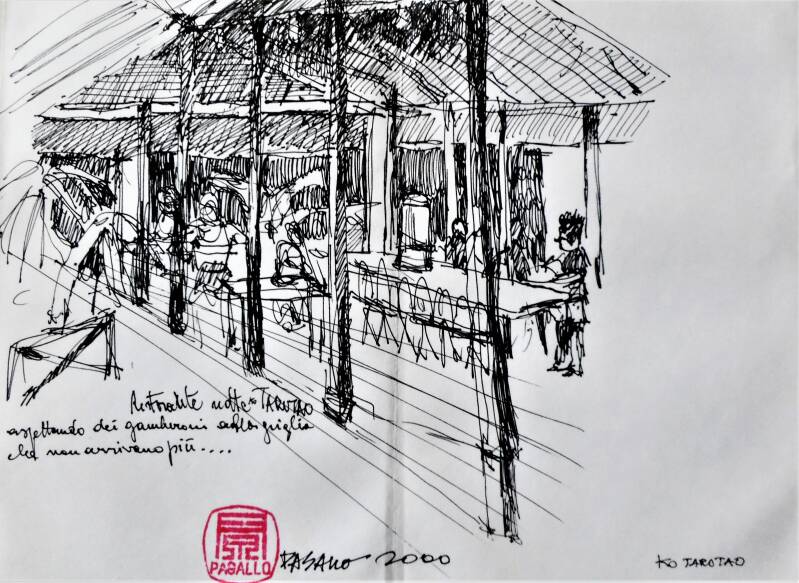 Ristorante notte TARUTAO
aspettando dei gamberoni alla griglia
che non arrivano più....
PAGALLO
2000
KO TAROTAO